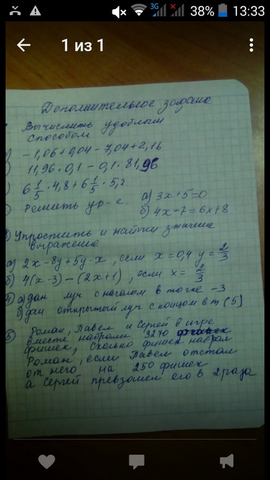 3G 38% 13:33
1 из 1
Дополнительное задание
Вычислить удобным
способом
) -1,06+0,04-7,04+2,16
) 11,96·0,1-0,1·81,96
) 6 1/5·4,8+6 1/5·5,2
) Решить ур-е а) 3x+5=0
б) 4x-7=6x+8
) Упростить и найти значение
выражение
а) 2x-8y+5y-x, если x=0,4 y=2/3
б) 4(x-3)-(2x+1), если x=2/3
④ а) дан луч с началом в точке -3
б) дан открытый луч с концом в т (5)
⑤ Роман, Павел и Сергей в игре
вместе набрали 3270
фишек, сколько фишек набрал
Роман, если Павел отстал
от него на 250 фишек
а Сергей превзошел его в 2 раза